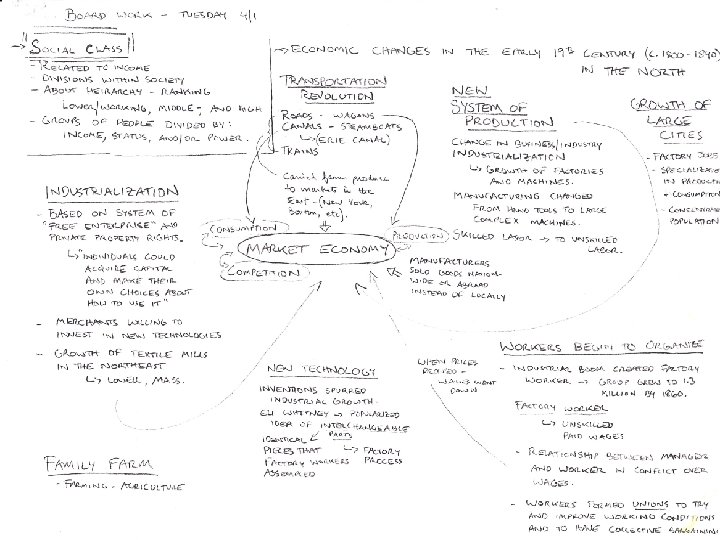 BOARD WORK - TUESDAY 4/1
"SOCIAL CLASS"
- RELATED TO INCOME
- DIVISIONS WITHIN SOCIETY
- ABOUT HEIRARCHY - RANKING
LOWER/WORKING, MIDDLE, AND HIGH
- GROUPS OF PEOPLE DIVIDED BY:
INCOME, STATUS, AND/OR POWER.
→ ECONOMIC CHANGES IN THE EARLY 19th CENTURY (c. 1800-1840)
IN THE NORTH
TRANSPORTATION
REVOLUTION
ROADS - WAGONS
CANALS - STEAMBOATS
↳ (ERIE CANAL)
- TRAINS
Carried farm produce
to markets in the
East - (New York,
Boston, etc).
NEW
SYSTEM OF
PRODUCTION
CHANGE IN BUSINESS/INDUSTRY
INDUSTRIALIZATION
↳ GROWTH OF FACTORIES
AND MACHINES.
MANUFACTURING CHANGED
FROM HAND TOOLS TO LARGE
COMPLEX MACHINES.
SKILLED LABOR → TO UNSKILLED
LABOR
GROWTH OF
LARGE
CITIES
- FACTORY JOBS
- SPECIALIZATION
IN PRODUCTION
+ CONSUMPTION
- CONCENTRATED
POPULATION
INDUSTRIALIZATION
- BASED ON SYSTEM OF
"FREE ENTERPRISE" AND
PRIVATE PROPERTY RIGHTS.
↳ "INDIVIDUALS COULD
ACQUIRE CAPITAL
AND MAKE THEIR
OWN CHOICES ABOUT
HOW TO USE IT"
- MERCHANTS WILLING TO
INVEST IN NEW TECHNOLOGIES
- GROWTH OF TEXTILE MILLS
IN THE NORTHEAST
↳ LOWELL, MASS.
CONSUMPTION
MARKET ECONOMY
PRODUCTION
COMPETITION
MANUFACTURERS
SOLD GOODS NATION
WIDE OR ABROAD
INSTEAD OF LOCALLY
NEW TECHNOLOGY
INVENTIONS SPURRED
INDUSTRIAL GROWTH
ELI WHITNEY → POPULARIZED
IDEA OF INTERCHANGEABLE
PARTS
IDENTICAL
PIECES THAT
FACTORY WORKERS
ASSEMBLED
↳ FACTORY
PROCESS
WHEN PRICES
DROPPED -
WAGES WENT
DOWN
WORKERS BEGIN TO ORGANIZE
- INDUSTRIAL BOOM CREATED FACTORY
WORKER → GROUP GREW TO 1.3
MILLION BY 1860.
FACTORY WORKER
↳ UNSKILLED
PAID WAGES
- RELATIONSHIP BETWEEN MANAGER
AND WORKER IN CONFLICT OVER
WAGES.
- WORKERS FORMED UNIONS TO TRY
AND IMPROVE WORKING CONDITIONS
AND TO HAVE COLLECTIVE BARGAINING
FAMILY FARM
- FARMING - AGRICULTURE